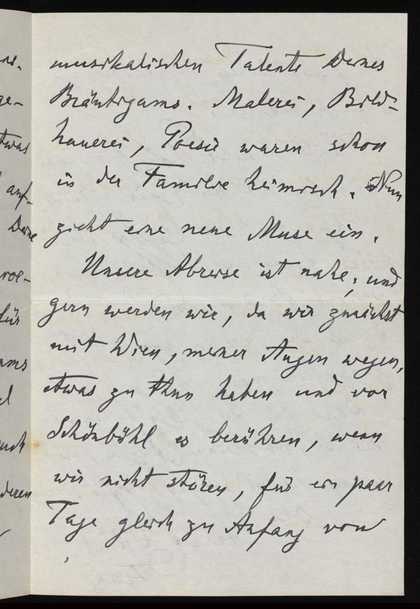 musikalischen Talents Deines
Bräutigams. Malerei, Bild-
hauerei, Poesie waren schon
in der Familie heimisch. Nun
zieht eine neue Muse ein.
Unsere Abreise ist nahe, und
gern werden wir, da wir zunächst
mit Wien, meiner Augen wegen,
etwas zu thun haben und vor
Schönbühl es berühren, wenn
wir nicht stören, für ein paar
Tage gleich zu Anfang von